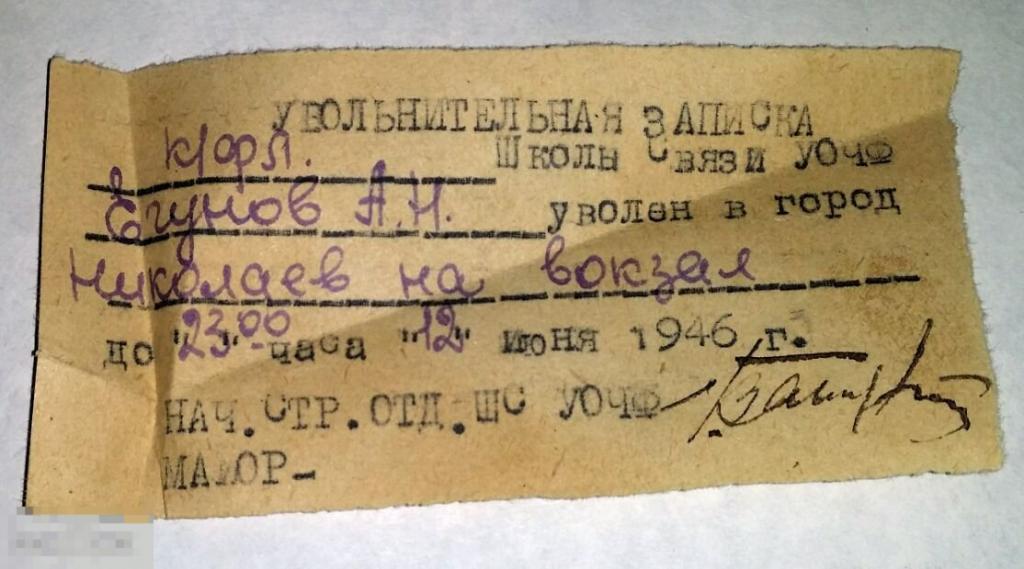 УВОЛЬНИТЕЛЬНАЯ ЗАПИСКА
к/фл. Школы Связи УОЧФ
Егунов А.Н. уволен в город
Николаев на вокзал
до "23 00" часа "12" июня 1946 г.
НАЧ.СТР.ОТД.ШС УОЧФ
МАЙОР-